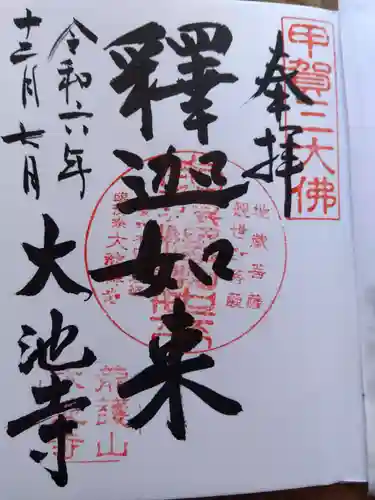 甲賀三大佛
奉拝
釋迦如来
地蔵菩薩
観世音菩薩
令和六年
十二月七日
大池寺
龍護山